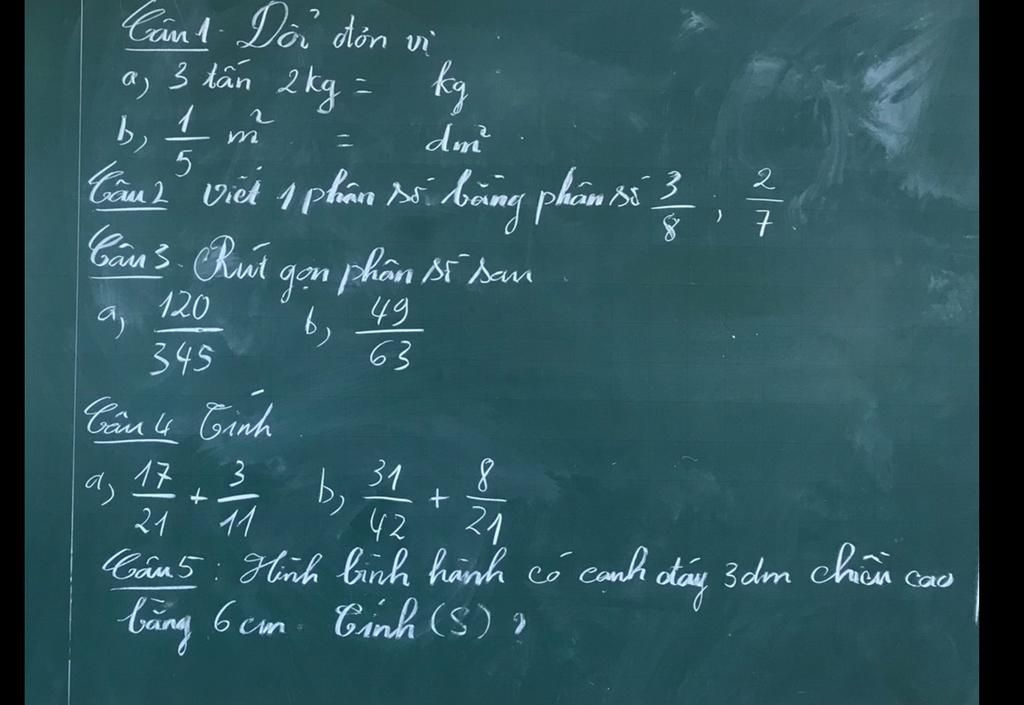 Câu 1. Đổi đơn vị
a, 3 tấn 2kg = kg
b, 1/5 m² = dm²
Câu 2 Viết 1 phân số bằng phân số 3/8 ; 2/7.
Câu 3. Rút gọn phân số sau
a, 120/345 b, 49/63
Câu 4 Tính
a, 17/21 + 3/11 b, 31/42 + 8/21
Câu 5: Hình bình hành có cạnh đáy 3dm chiều cao
bằng 6 cm. Tính (S) ?